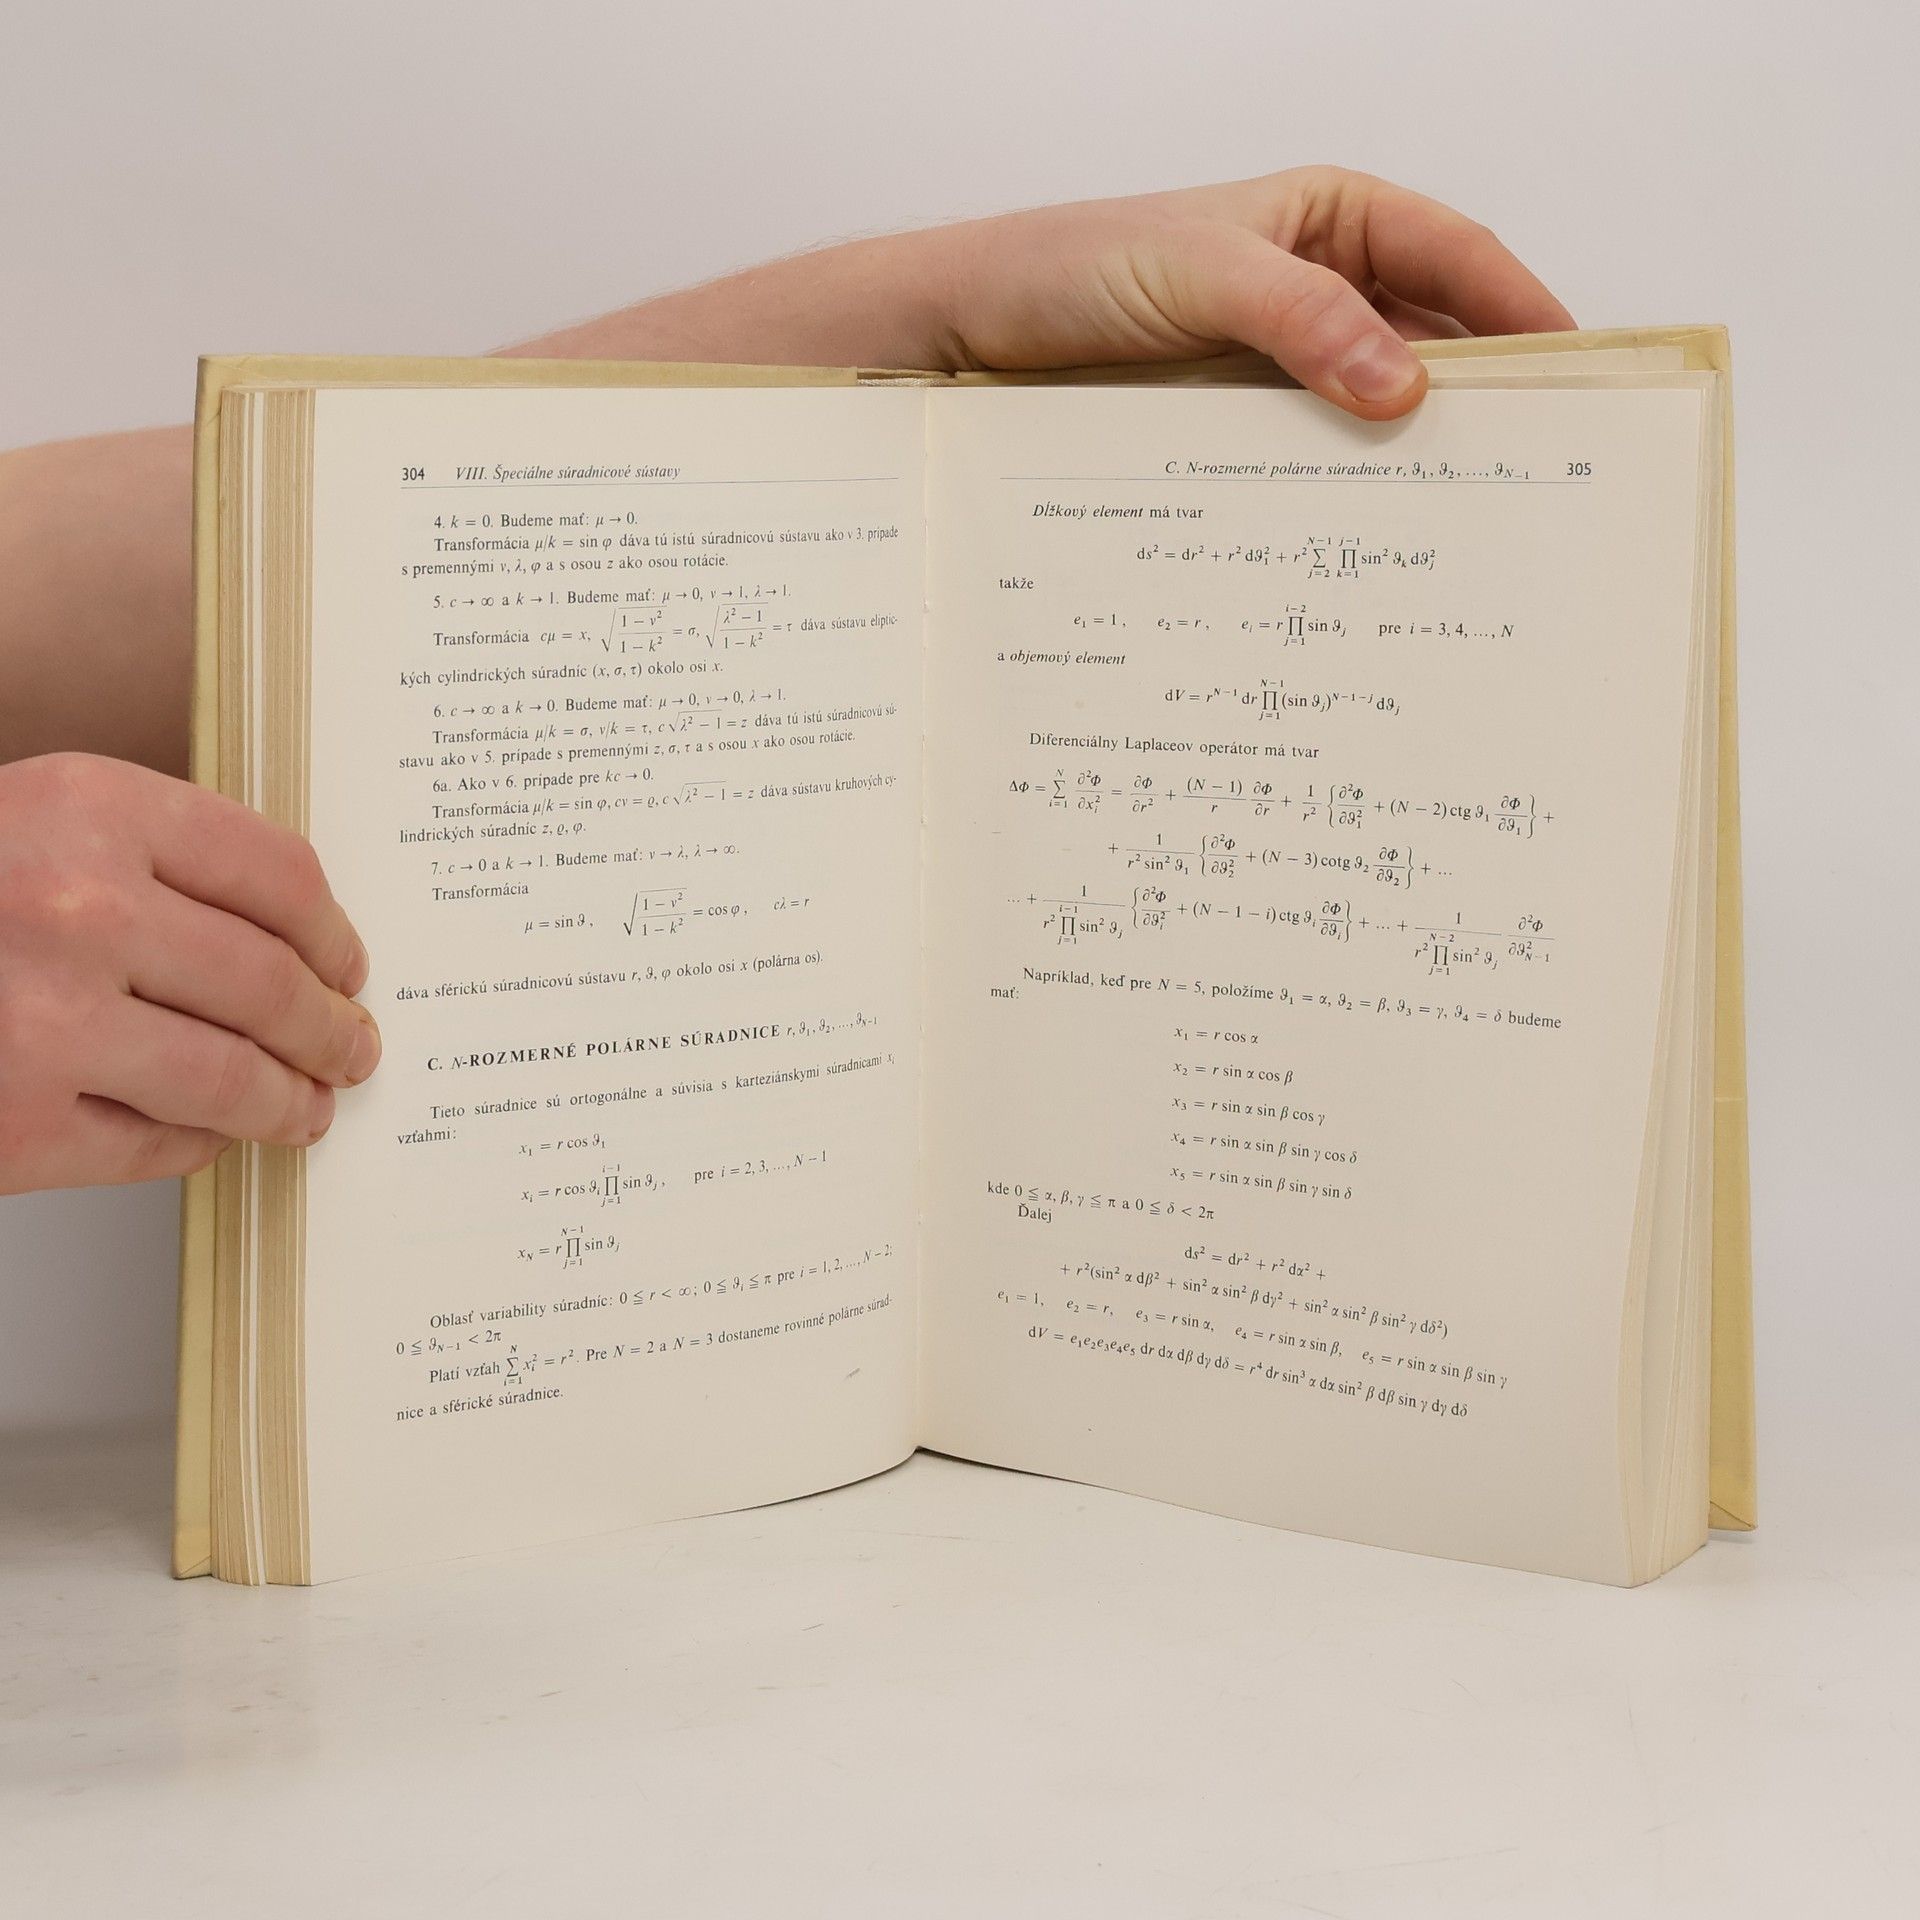 304 VIII. Špeciálne súradnicové sústavy
4. k = 0. Budeme mať: μ → 0.
Transformácia μ/k = sin φ dáva tú istú súradnicovú sústavu ako v 3. prípade
s premennými ν, λ, φ a s osou z ako osou rotácie.
5. c → ∞ a k → 1. Budeme mať: μ → 0, ν → 1, λ → 1.
Transformácia cμ = x, √((1 − ν²)/(1 − k²)) = σ, √((λ² − 1)/(1 − k²)) = τ dáva sústavu eliptic-
kých cylindrických súradníc (x, σ, τ) okolo osi x.
6. c → ∞ a k → 0. Budeme mať: μ → 0, ν → 0, λ → 1.
Transformácia μ/k = σ, ν/k = τ, c√(λ² − 1) = z dáva tú istú súradnicovú sú-
stavu ako v 5. prípade s premennými z, σ, τ a s osou x ako osou rotácie.
6a. Ako v 6. prípade pre kc → 0.
Transformácia μ/k = sin φ, cν = ϱ, c√(λ² − 1) = z dáva sústavu kruhových cy-
lindrických súradníc z, ϱ, φ.
7. c → 0 a k → 1. Budeme mať: ν → λ, λ → ∞.
Transformácia
μ = sin ϑ, √((1 − ν²)/(1 − k²)) = cos φ, cλ = r
dáva sférickú súradnicovú sústavu r, ϑ, φ okolo osi x (polárna os).
C. N-ROZMERNÉ POLÁRNE SÚRADNICE r, ϑ₁, ϑ₂, ..., ϑ_{N−1}
Tieto súradnice sú ortogonálne a súvisia s karteziánskymi súradnicami xᵢ
vzťahmi:
x₁ = r cos ϑ₁
xᵢ = r cos ϑᵢ ∏_{j=1}^{i−1} sin ϑⱼ, pre i = 2, 3, ..., N − 1
x_N = r ∏_{j=1}^{N−1} sin ϑⱼ
Oblasť variability súradníc: 0 ≦ r < ∞; 0 ≦ ϑᵢ ≦ π pre i = 1, 2, ..., N − 2;
0 ≦ ϑ_{N−1} < 2π
Platí vzťah ∑_{i=1}^{N} xᵢ² = r². Pre N = 2 a N = 3 dostaneme rovinné polárne súrad-
nice a sférické súradnice.
C. N-rozmerné polárne súradnice r, ϑ₁, ϑ₂, ..., ϑ_{N−1} 305
Dĺžkový element má tvar
ds² = dr² + r² dϑ₁² + r² ∑_{j=2}^{N−1} ∏_{k=1}^{j−1} sin² ϑₖ dϑⱼ²
takže
e₁ = 1, e₂ = r, eᵢ = r ∏_{j=1}^{i−2} sin ϑⱼ pre i = 3, 4, ..., N
a objemový element
dV = r^{N−1} dr ∏_{j=1}^{N−1} (sin ϑⱼ)^{N−1−j} dϑⱼ
Diferenciálny Laplaceov operátor má tvar
ΔΦ = ∑_{i=1}^{N} ∂²Φ/∂xᵢ² = ∂Φ/∂r² + (N − 1)/r ∂Φ/∂r + 1/r² {∂²Φ/∂ϑ₁² + (N − 2) ctg ϑ₁ ∂Φ/∂ϑ₁} +
+ 1/(r² sin² ϑ₁) {∂²Φ/∂ϑ₂² + (N − 3) cotg ϑ₂ ∂Φ/∂ϑ₂} + ...
... + 1/(r² ∏_{j=1}^{i−1} sin² ϑⱼ) {∂²Φ/∂ϑᵢ² + (N − 1 − i) ctg ϑᵢ ∂Φ/∂ϑᵢ} + ... + 1/(r² ∏_{j=1}^{N−2} sin² ϑⱼ) ∂²Φ/∂ϑ²_{N−1}
Napríklad, keď pre N = 5, položíme ϑ₁ = α, ϑ₂ = β, ϑ₃ = γ, ϑ₄ = δ budeme
mať:
x₁ = r cos α
x₂ = r sin α cos β
x₃ = r sin α sin β cos γ
x₄ = r sin α sin β sin γ cos δ
x₅ = r sin α sin β sin γ sin δ
kde 0 ≦ α, β, γ ≦ π a 0 ≦ δ < 2π
Ďalej
ds² = dr² + r² dα² +
+ r²(sin² α dβ² + sin² α sin² β dγ² + sin² α sin² β sin² γ dδ²)
e₁ = 1, e₂ = r, e₃ = r sin α, e₄ = r sin α sin β, e₅ = r sin α sin β sin γ
dV = e₁e₂e₃e₄e₅ dr dα dβ dγ dδ = r⁴ dr sin³ α dα sin² β dβ sin γ dγ dδ